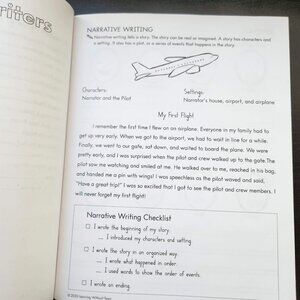 riters
NARRATIVE WRITING
Narrative writing tells a story. The story can be real or imagined. A story has characters and
a setting. It also has a plot, or a series of events that happens in the story.
Characters:
Narrator and the Pilot
Settings:
Narrator's house, airport, and airplane
My First Flight
I remember the first time I flew on an airplane. Everyone in my family had to
get up very early. When we got to the airport, we had to wait in line for a while.
Finally, we went to our gate, sat down, and waited to board the plane. We were
pretty early, and I was surprised when the pilot and crew walked up to the gate. The
pilot saw me watching and smiled at me. He walked over to me, reached in his bag,
and handed me a pin with wings! I was speechless as the pilot waved and said,
"Have a great trip!" I was so excited that I got to see the pilot and crew members. I
will never forget my first flight!
Narrative Writing Checklist
I wrote the beginning of my story.
I introduced my characters and setting.
I wrote the story in an organized way.
I wrote what happened in order.
I used words to show the order of events.
I wrote an ending.
Learning Without Tears